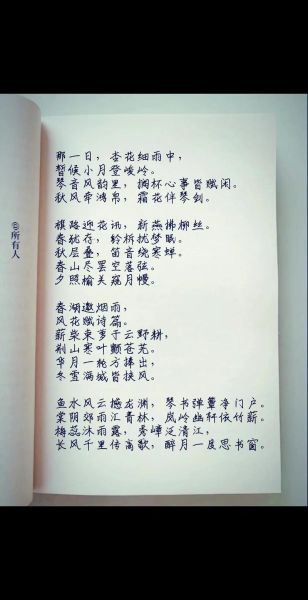 @所有人
那一日，杏花细雨中，
暂候小月登峻岭。
琴音风韵里，搁杯心事皆赋闲。
秋风牵鸿帛，霜花伴琴剑。
旗路迎花讯，新燕拂柳丝。
春犹存，轸桥扰梦眠。
秋层叠，笛音绕寒蝉。
春山尽罢空落弦。
夕照榆关窥月慢。
春湖邀烟雨，
风花赋诗篇。
薪柴束芗于云野耕，
荆山寒叶颤苍芜。
华月一轮方捧出，
冬雪满城皆挟风。
鱼水风云撼龙渊，琴书弹簟净门户。
棠阴郊雨汇青林，岚岭幽轩依竹薪。
梅蕊沐雨露，秀嶂泛清江，
长风千里倚高歌，醉月一度思书窗。